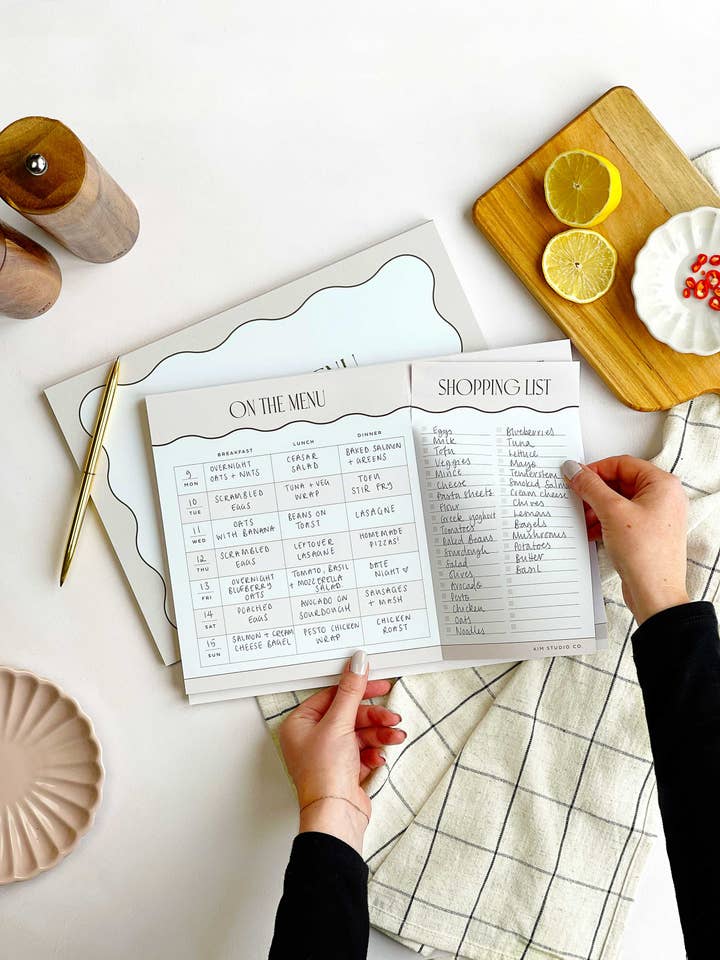 ENU
ON THE MENU
BREAKFAST LUNCH DINNER
9 MON
OVERNIGHT OATS + NUTS
CEASAR SALAD
BAKED SALMON + GREENS
10 TUE
SCRAMBLED EGGS
TUNA + VEG WRAP
TOFU STIR FRY
11 WED
OATS WITH BANANA
BEANS ON TOAST
LASAGNE
12 THU
SCRAMBLED EGGS
LEFTOVER LASAGNE
HOMEMADE PIZZAS!
13 FRI
OVERNIGHT BLUEBERRY OATS
TOMATO, BASIL + MOZZERELLA SALAD
DATE NIGHT ♡
14 SAT
POACHED EGGS
AVOCADO ON SOURDOUGH
SAUSAGES + MASH
15 SUN
SALMON + CREAM CHEESE BAGEL
PESTO CHICKEN WRAP
CHICKEN ROAST
SHOPPING LIST
Eggs
Milk
Tofu
Veggies
Mince
Cheese
Pasta sheets
Flour
Greek yoghurt
Tomatoes
Baked Beans
Sourdough
Salad
Olives
Avocado
Pesto
Chicken
Oats
Noodles
Blueberries
Tuna
Lettuce
Mayo
Tenderstem
Smoked Salm
Cream cheese
Chives
Lemons
Bagels
Mushrooms
Potatoes
Butter
Basil
KIM STUDIO CO.